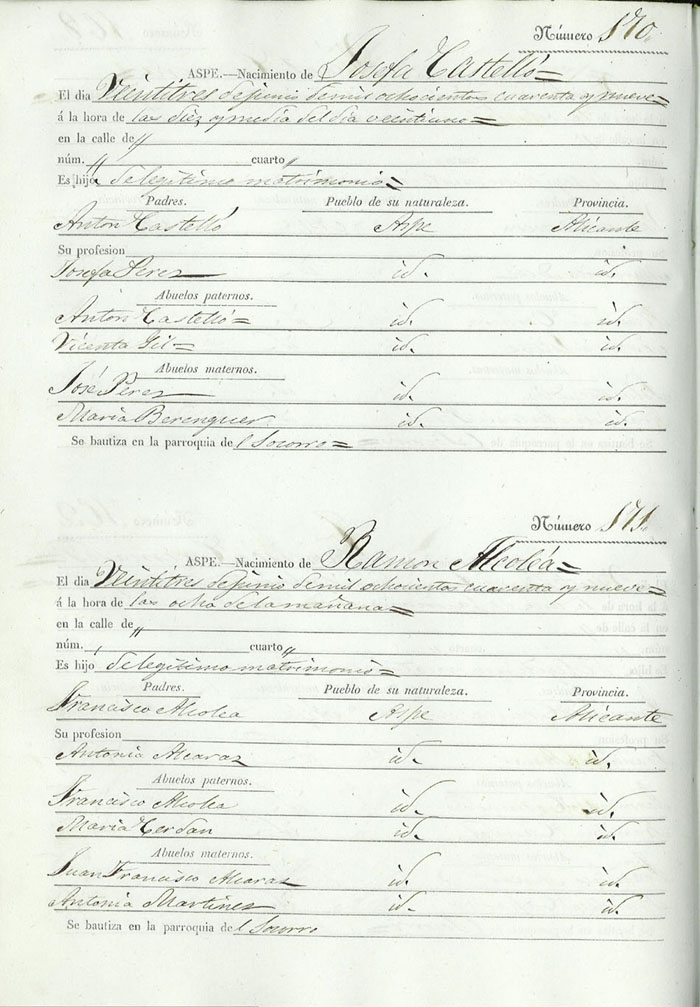 Número 170.
ASPE.—Nacimiento de Josefa Castelló=
El dia Veintitres de junio de mil ochocientos cuarenta y nueve=
á la hora de las diez y media del dia veintiuno=
en la calle de "
núm. " cuarto "
Es hija de legitimo matrimonio=
Padres. Pueblo de su naturaleza. Provincia.
Anton Castelló Aspe Alicante
Su profesion
Josefa Perez id. id.
Abuelos paternos.
Anton Castelló= id. id.
Vicenta Gil= id. id.
Abuelos maternos.
José Perez id. id.
Maria Berenguer id. id.
Se bautiza en la parroquia del Socorro=
Número 171.
ASPE.—Nacimiento de Ramon Alcoléa=
El dia Veintitres de junio de mil ochocientos cuarenta y nueve=
á la hora de las ocho de la mañana=
en la calle de "
núm. , cuarto "
Es hijo de legitimo matrimonio=
Padres. Pueblo de su naturaleza. Provincia.
Francisco Alcolea Aspe Alicante
Su profesion
Antonia Alcaraz id. id.
Abuelos paternos.
Francisco Alcolea id. id.
Maria Cerdan id. id.
Abuelos maternos.
Juan Francisco Alcaraz id. id.
Antonia Martinez id. id.
Se bautiza en la parroquia del Socorro